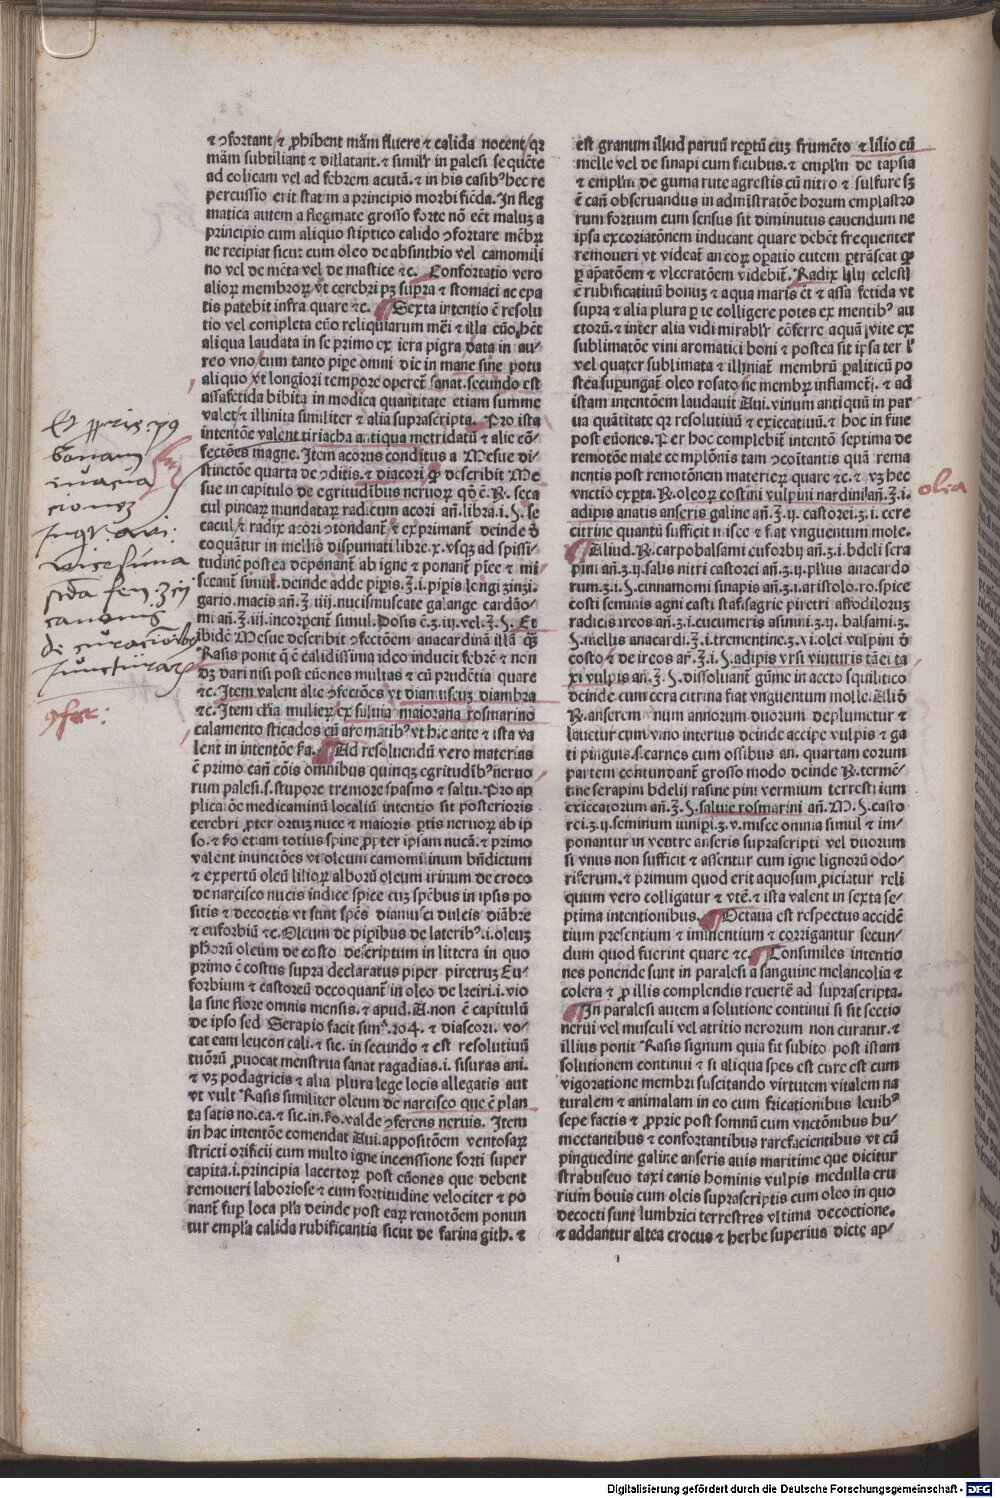 ⁊ ↄfortant ⁊ ꝓhibent mãm fluere ⁊ calida nocent qꝛ
mãm subtiliant ⁊ dillatant. ⁊ simil'r in palesi sequẽte
ad colicam vel ad febrem acutã. ⁊ in his casibꝰ hec re
percussio erit statim a principio morbi fiẽda. In fleg
matica autem a flegmate grosso forte nõ eẽt maluꝫ a
principio cum aliquo stiptico calido ↄfortare mẽbrꝝ
ne recipiat sicut cum oleo de absinthio vel camomili
no vel de mẽta vel de mastice ⁊c. Confortatio vero
alioꝝ membroꝝ vt cerebri pꝫ supra ⁊ stomaci ac epa
tis patebit infra quare ⁊c. Sexta intentio ẽ resolu
tio vel completa euo reliquiarum mẽi ⁊ illa euõ hẽt
aliqua laudata in se primo ex iera pigra data in au/
reo vno cum tanto pipe omni die in mane sine potu
aliquo vt longiori tempore operet̃ sanat. secundo est
assafetida bibita in modica quantitate etiam summe
valet ⁊ illinita similiter ⁊ alia suprascripta. Pro ista
intentõe valent tiriacha antiqua metridatũ ⁊ alie cõ/
fectões magne. Item acorus conditus a Mesue di/
stinctõe quarta de ↄditis. ⁊ diacori quẽ describit Me
sue in capitulo de egritudibus neruoꝝ qđ ẽ. ℞. seca
cul pineaꝝ mundataꝝ radicum acori añ. libra. i. ss. se
cacul ⁊ radix acori ↄtondant̃ ⁊ exprimant̃ deinde
coquãtur in mellis dispumati libre. x. vsqꝫ ad spissi/
tudinẽ postea deponant̃ ab igne ⁊ ponant̃ pice ⁊ mi/
sceant̃ simul. deinde adde pipis. ℥. i. pipis longi zinzi.
gario. macis añ. ℥. iiij. nucis muscate galange cardão/
mi añ. ℥. iii. incorpent̃ simul. Dosis ẽ. ʒ. iij. vel. ℥. ss. Et
ibidẽ Mesue describit ↄfectõem anacardinã illã quã
Rasis ponit q̃ ẽ calidissima ideo inducit febrẽ ⁊ non
dꝫ dari nisi post euões multas ⁊ cũ prudẽtia quare
⁊c. Item valent alie ↄfectões vt diamuscuꝫ diambra
⁊c. Item clria mulieꝝ ex saluia maiorana rosmarino
calamento sticados cũ aromatibꝰ vt hic ante ⁊ ista va
lent in intentõe ßa. Ad resoluendũ vero materias
ẽ primo cañ cõis omnibus quinqꝫ egritudibꝰ neruo
rum palesi. s. stupore tremore spasmo ⁊ saltu. Pro ap
plicatõe medicaminũ localiũ intentio sit posterioris
cerebri ꝓpter ortuꝫ nuce ⁊ maioris ꝑtis neruoꝝ ab ip
so. ⁊ ßo etiam totius spine ꝓpter ipsam nucã. ⁊ primo
valent inunctões vt oleum camomilinum bñdictum
⁊ expertũ oleũ lilioꝝ alborũ oleum irinum de croco
de narcisco nucis indice spice cuꝫ spẽbus in ipsis po
sitis ⁊ decoctis vt sunt spẽs diamusci dulcis diãbre
⁊ euforbiũ ⁊c. Oleum de pipibus de lateribꝰ. i. oleuꝫ
phorũ oleum de costo descriptum in littera in quo
primo ẽ costus supra declaratus piper piretruꝫ Eu/
forbium ⁊ castoreũ decoquant̃ in oleo de kreiri. i. vio
la sine flore omnis mensis. ⁊ apud. A. non ẽ capitulũ
de ipso sed Serapio facit simꝭ. 204. ⁊ diascori. vo/
cat eam leucon cali. ⁊ sic. in secundo ⁊ est resolutiuũ
tuõrũ ꝓuocat menstrua sanat ragadias. i. sisuras ani.
⁊ vꝫ podagricis ⁊ alia plura lege locis allegatis aut
vt vult Rasis similiter oleum de narcisco que ẽ plan
ta satis no. ca. ⁊ sic. in. ßo. valde ↄferens neruis. Item
in hac intentõe comendat Aui. appositõem ventosaꝝ
stricti orificii cum multo igne incenssione forti super
capita. i. principia lacertoꝝ post euões que debent
remoueri laboriose ⁊ cum fortitudine velociter ⁊ po
nant̃ sup loca pła deinde post eaꝝ remotõem ponun
tur empla calida rubificantia sicut de farina gith. ⁊
est granum illud paruũ reptũ cuꝫ frumẽto ⁊ lilio cũ
melle vel de sinapi cum ficubus. ⁊ emplm de tapsia
⁊ emplm de guma rute agrestis cũ nitro ⁊ sulfure sꝫ
ẽ cañ obseruandus in administratõe horum emplastro
rum fortium cum sensus sit diminutus cauendum ne
ipsa excoriatõnem inducant quare debẽt frequenter
remoueri vt videat̃ an eoꝝ opatio cutem ptrãseat
p apatõem ⁊ vlceratõem videbit̃. Radix lilij celesti
ẽ rubificatiuũ bonuꝫ ⁊ aqua maris ẽt ⁊ assa fetida vt
supra ⁊ alia plura p te colligere potes ex mentibꝰ au
ctorũ. ⁊ inter alia vidi mirabil'r cõferre aquã vite ex
sublimatõe vini aromatici boni ⁊ postea sit ipsa ter l'
vel quater sublimata ⁊ illiniat̃ membrũ paliticũ po
stea supungat̃ oleo rosato ne membꝝ inflamet̃. ⁊ ad
istam intentõem laudauit Aui. vinum antiquũ in par
ua quãtitate qꝛ resolutiuũ ⁊ exiccatiuũ. ⁊ hoc in fine
post euões. Per hoc complebit̃ intentõ septima de
remotõe male cõplõnis tam ↄcoitantis quã rema
nentis post remotõnem materieꝝ quare ⁊c. ⁊ vꝫ hec
vnctio expta. ℞. oleoꝝ costini vulpini nardini añ. ℥. i.
adipis anatis anseris galine añ. ℥. ij. castorei. ʒ. i. cere
citrine quantũ sufficit misce ⁊ fiat vnguentum mole.
Aliud. ℞. carpobalsami euforbij añ. ʒ. i. bdeli sera
pini añ. ʒ. ij. salis nitri castorei añ. ʒ. ij. pl'ius anacardo
rum. ʒ. i. ss. cinnamomi sinapis añ. ʒ. i. aristolo. ro. spice
costi seminis agni casti stafisagrie piretri affodiloruꝫ
radicis ireos añ. ʒ. i. cucumeris asinini. ʒ. ij. balsami. ʒ.
ss. mellis anacardi. ℥. i. trementine. ʒ. vi. olei vulpini đ
costo ⁊ de ireos añ. ℥. i. ss. adipis vrsi vulturis tãei ta
xi vulpis añ. ℥. ss. dissoluant̃ gũme in aceto squilitico
deinde cum cera citrina fiat vnguentum molle. Aliđ
℞. anserem vnum annorum duorum deplumetur ⁊
lauetur cum vino interius deinde accipe vulpis ⁊ ga
ti pinguis. s. carnes cum ossibus an. quartam eorum
partem contundant̃ grosso modo deinde ℞. termẽ/
tine serapim bdelij rasine pini vermium terrestrium
exiccatorum añ. ℥. ss. saluie rosmarini añ. M. ss. casto
rei. ʒ. ij. seminum iunipi. ʒ. v. misce omnia simul ⁊ im/
ponantur in ventre anseris suprascripti vel duorum
si vnus non sufficit ⁊ assentur cum igne lignorũ odo/
riferum. ⁊ primum quod erit aquosum ꝓiciatur reli
quum vero colligatur ⁊ vtẽ. ⁊ ista valent in sexta se/
ptima intentionibus. Octaua est respectus accidẽ
tium presentium ⁊ iminentium ⁊ corrigantur secun/
dum quod fuerint quare ⁊c. Consimiles intentio
nes ponende sunt in paralesi a sanguine melancolia ⁊
colera ⁊ ꝓ illis complendis reuertẽ ad suprascripta.
In paralesi autem a solutione continui si sit sectio
nerui vel musculi vel atritio nerorum non curatur. ⁊
illius ponit Rasis signum quia fit subito post istam
solutionem continui ⁊ si aliqua spes est cure est cum
vigoratione membri suscitando virtutem vitalem na
turalem ⁊ animalam in eo cum fricationibus leuibꝰ
sepe factis ⁊ ꝓprie post somnũ cum vnctõnibus hu/
mectantibus ⁊ confortantibus rarefacientibus vt cũ
pinguedine galine anseris auis maritime que dicitur
strabuseuo taxi canis hominis vulpis medulla cru
rium bouis cum oleis suprascriptis cum oleo in quo
decocti sunt lumbrici terrestres vltima decoctione.
⁊ addantur altea crocus ⁊ herbe superius dicte ap/
bonam
vicesima
canonis
de curacionibꝰ
iuncturaꝝ
olea
Digitalisierung gefördert durch die Deutsche Forschungsgemeinschaft - DFG